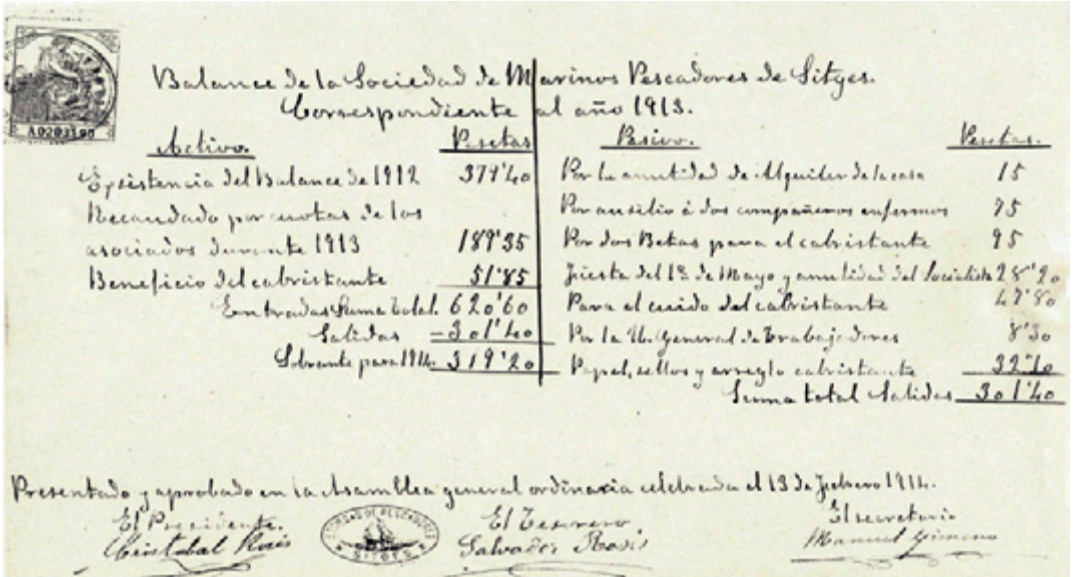 A0201190
Balance de la Sociedad de Marinos Pescadores de Sitges.
Correspondiente al año 1913.
Activo. Pesetas
Epsistencia del Balance de 1912 379'40
Recaudado por cuotas de los
asociados durante 1913 189'35
Beneficio del cabristante 51'85
Entradas Suma total. 620'60
Salidas —301'40
Sobrante para 1914. 319'20
Pasivo. Pesetas.
Por la anutidad de Alquiler de la casa 15
Por ausilio á dos compañeros enfermos 75
Por dos Betas para el cabristante 95
Fiesta del 1º de Mayo y anulidad del Socialista 28'20
Para el cuido del cabristante 47'80
Por la U. General de Trabajadores 8'30
Papel, sellos y arreglo cabristante 32'10
Suma total Salidas 301'40
Presentado y aprobado en la Asamblea general ordinaria celebrada el 13 de Febrero 1914.
El Presidente.
Cristobal
SOCIEDAD DE PESCADORES
SITGES
El Tesorero
Salvador
El secretario
Manuel Gimeno